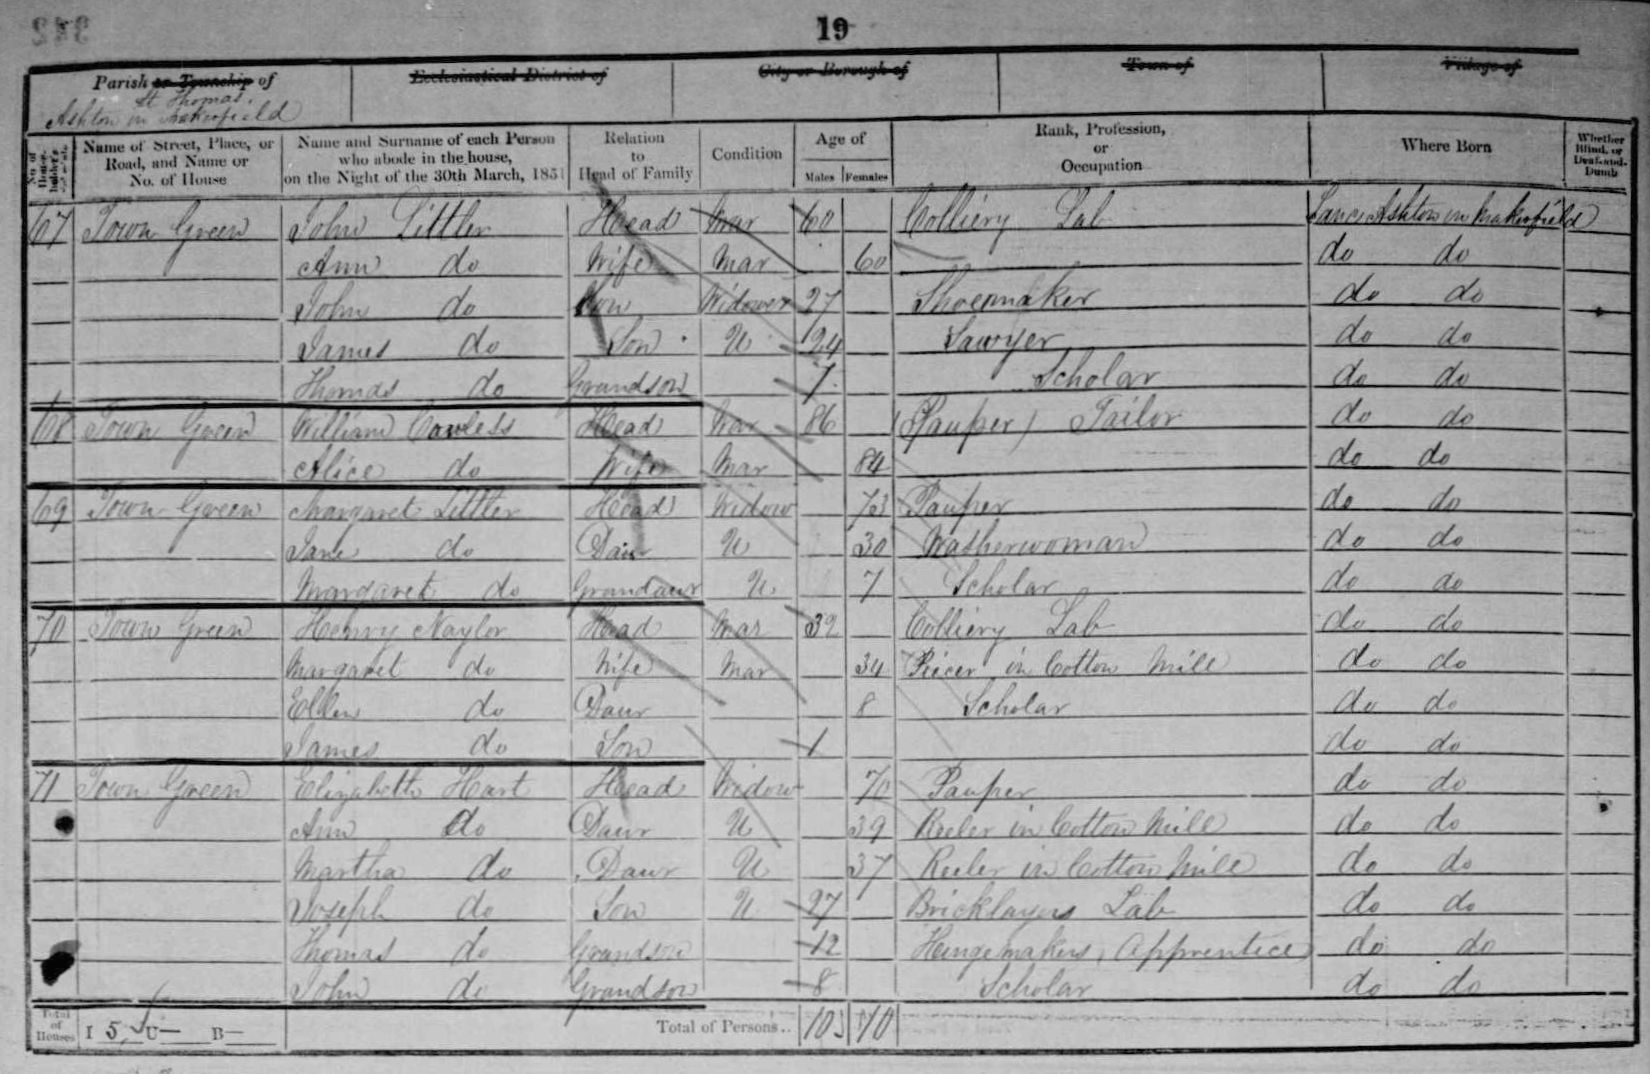 19
Parish or Township of
Ecclesiastical District of
City or Borough of
Town of
Village of
St Thomas.
Ashton in Makerfield
No. of House-holder's Schedule
Name of Street, Place, or Road, and Name or No. of House
Name and Surname of each Person who abode in the house, on the Night of the 30th March, 1851
Relation to Head of Family
Condition
Age of
Males Females
Rank, Profession, or Occupation
Where Born
Whether Blind, or Deaf-and-Dumb
67 Town Green John Littler Head Mar 60 Colliery Lab Lanc Ashton in Makerfield
Ann do Wife Mar 60 do do
John do Son Widower 27 Shoemaker do do
James do Son U 24 Sawyer do do
Thomas do Grandson 7 Scholar do do
68 Town Green William Cawless Head Mar 86 (Pauper) Tailor do do
Alice do Wife Mar 84 do do
69 Town Green Margaret Littler Head Widow 73 Pauper do do
Jane do Daur U 30 Washerwoman do do
Margaret do Grandaur U 7 Scholar do do
70 Town Green Henry Naylor Head Mar 32 Colliery Lab do do
Margaret do Wife Mar 34 Piecer in Cotton Mill do do
Ellen do Daur 8 Scholar do do
James do Son 1 do do
71 Town Green Elizabeth Hart Head Widow 70 Pauper do do
Ann do Daur U 39 Reeler in Cotton Mill do do
Martha do Daur U 37 Reeler in Cotton Mill do do
Joseph do Son U 27 Bricklayers Lab do do
Thomas do Grandson 12 Hingemakers Apprentice do do
John do Grandson 8 Scholar do do
Total of Houses I 5 U— B— Total of Persons.. 10 10